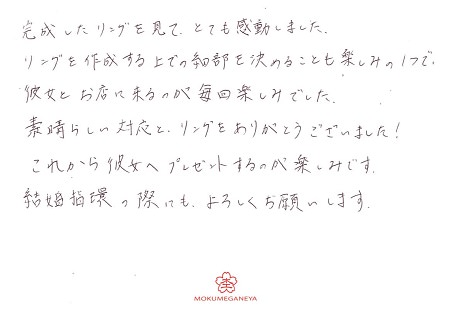 完成したリングを見て、とても感動しました。
リングを作成する上での細部を決めることも楽しみの1つで、
彼女とお店に来るのが毎回楽しみでした。
素晴らしい対応と、リングをありがとうございました！
これから彼女へプレゼントするのが楽しみです。
結婚指環の際にも、よろしくお願いします。
MOKUMEGANEYA